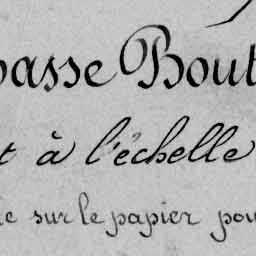 passe Bout
t à l'échelle
ie sur le papier pou